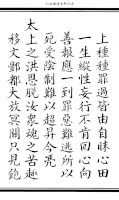 上種種罪過皆由自昧心田
一生縱性妄行不肯回心向
善報應一到罪惡難逃所以
死受陰制難以超昇今
太上之洪恩脫汝衆魂之苦趣
移文酆都大放冥關只見飽